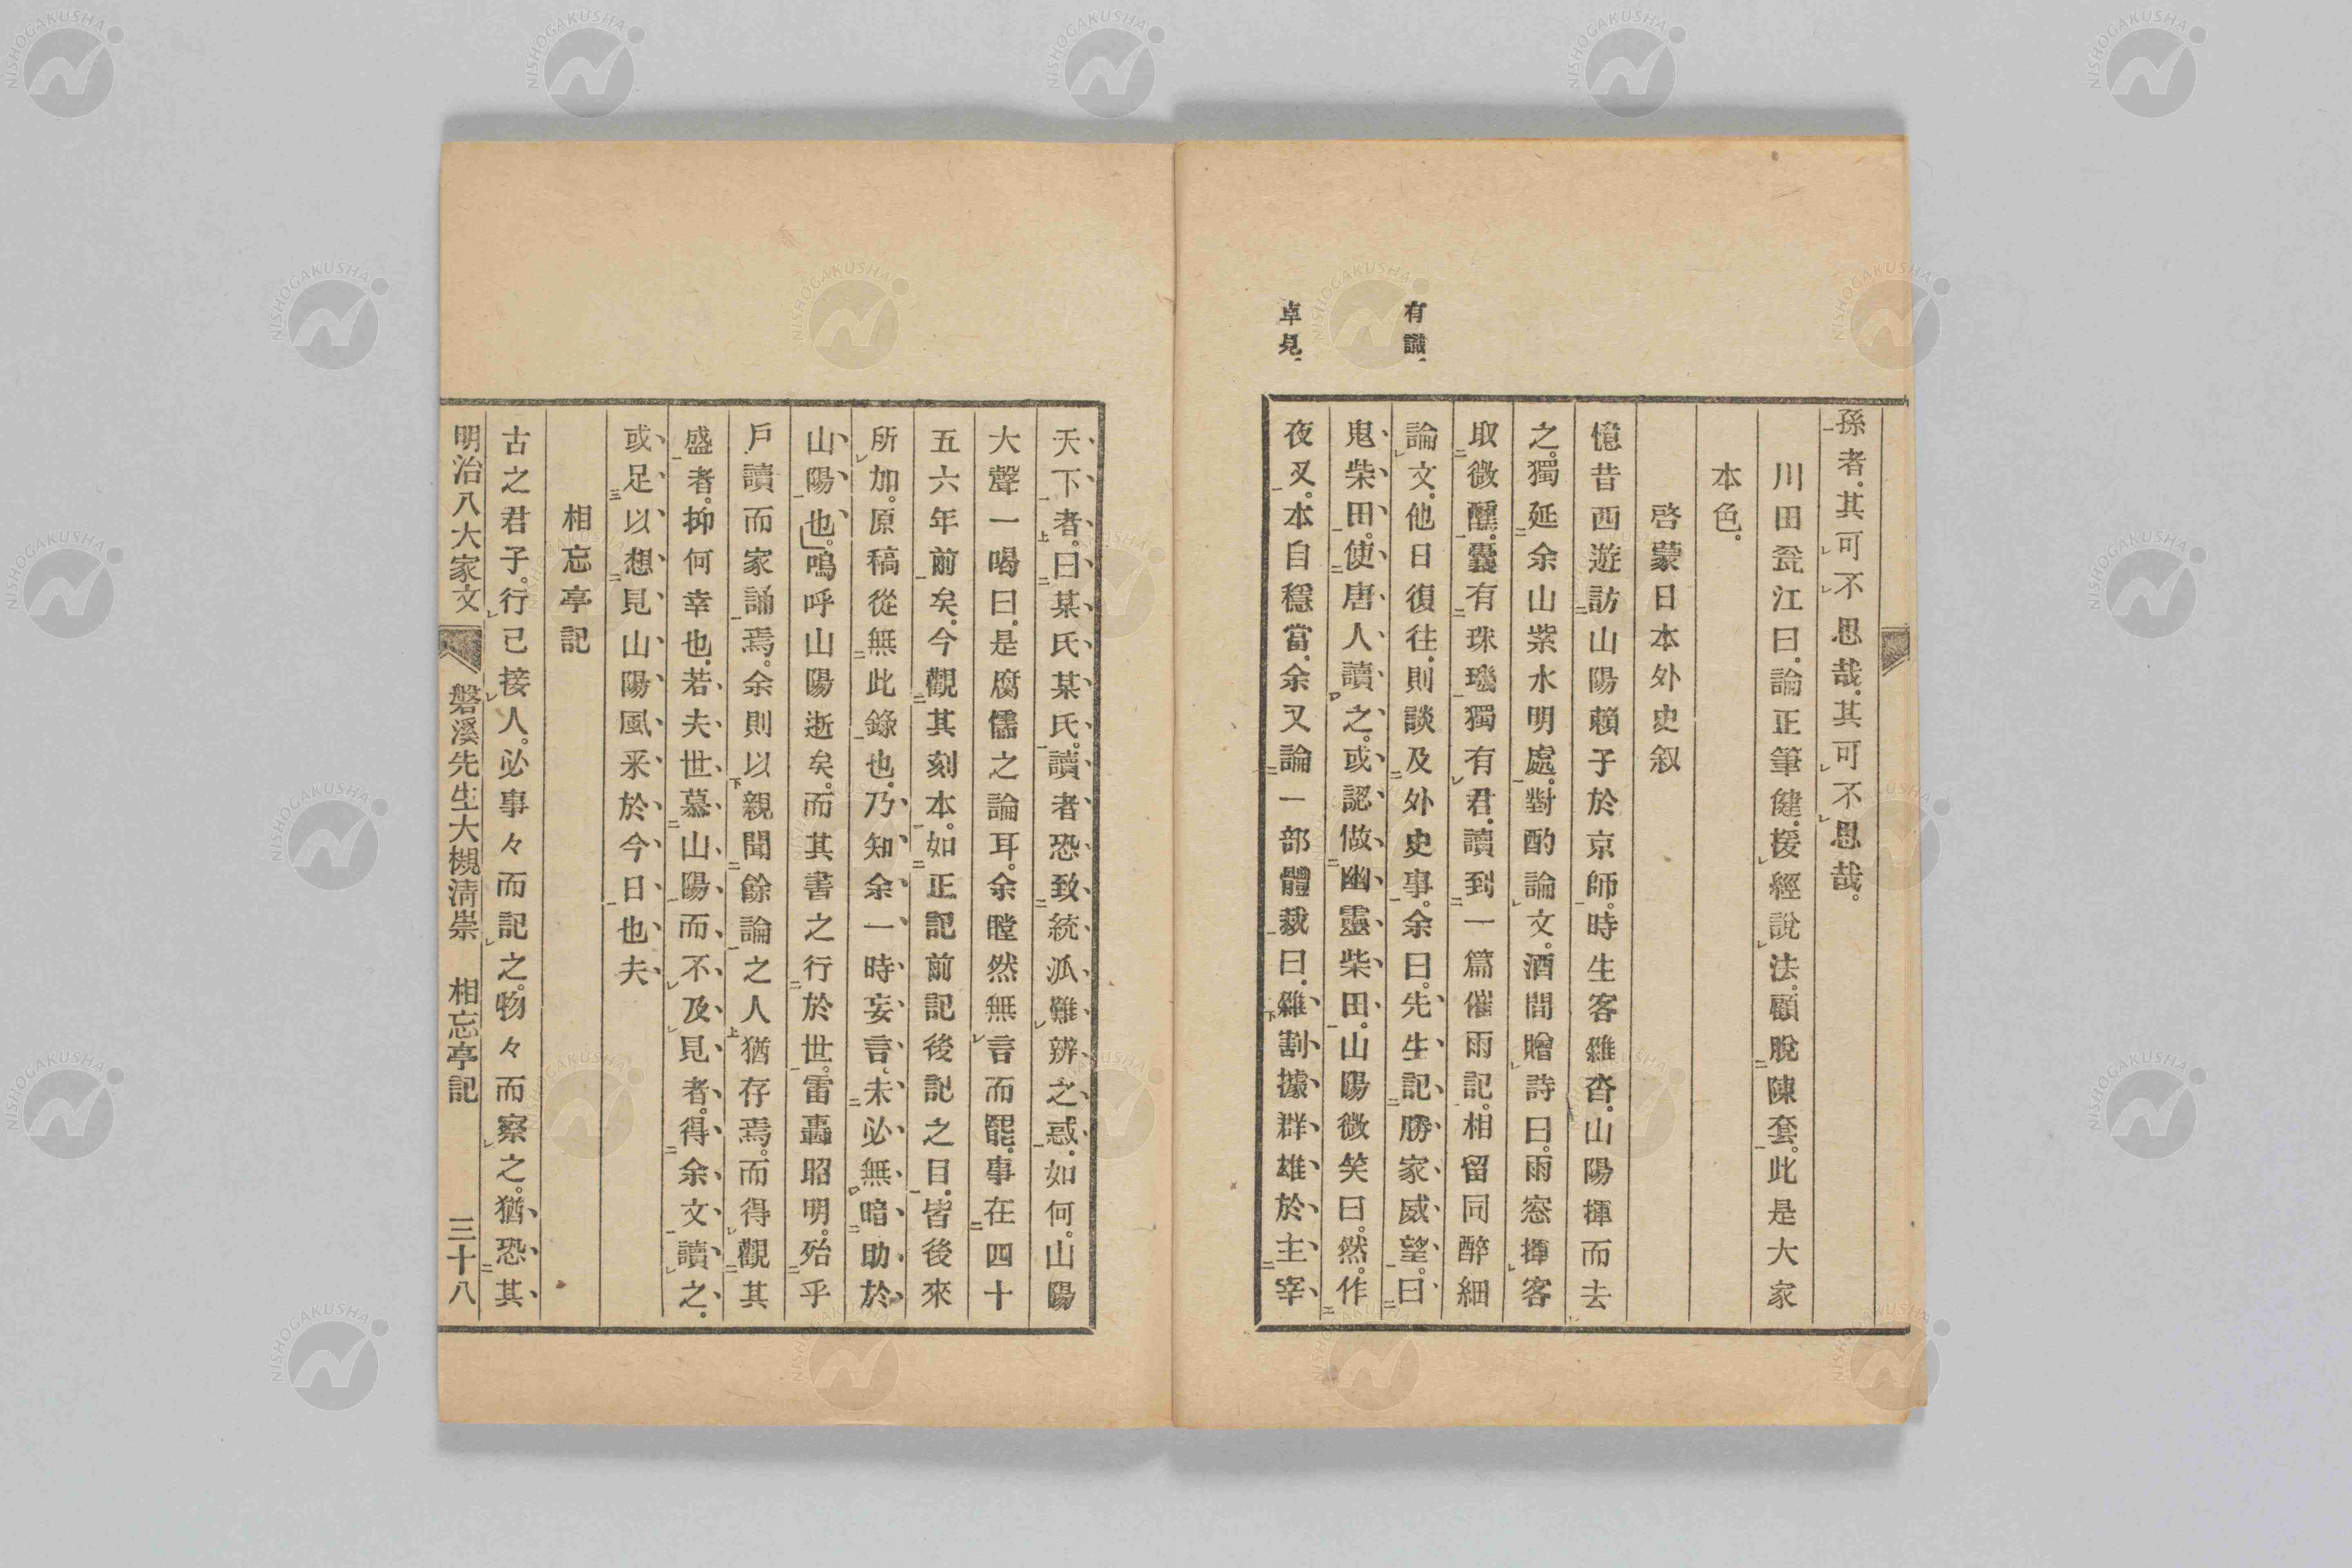 孫者。其可不思哉。其可不思哉。
川田瓮江曰。論正筆健。援經説法。顧脫陳套。此是大家
本色。
啓蒙日本外史叙
憶昔西遊訪山陽賴子於京師。時生客雜沓。山陽揮而去
之。獨延余山紫水明處。對酌論文。酒間贈詩曰。雨窓揮客
取微醺。囊有珠璣獨有君。讀到一篇催雨記。相留同醉細
論文。他日復往。則談及外史事。余曰。先生記勝家威望。曰
鬼柴田。使唐人讀之。或認做幽靈柴田。山陽微笑曰。然。作
夜叉。本自穩當。余又論一部體裁曰。雖割據群雄於主宰
有識。
卓見。
天下者。曰某氏某氏。讀者恐致統泒難辨之惑。如何。山陽
大聲一喝曰。是腐儒之論耳。余瞠然無言而罷。事在四十
五六年前矣。今觀其刻本。如正記前記後記之目。皆後來
所加。原稿從無此錄也。乃知余一時妄言。未必無暗助於
山陽也。嗚呼山陽逝矣。而其書之行於世。雷轟昭明。殆乎
戶讀而家誦焉。余則以親聞餘論之人猶存焉。而得觀其
盛者。抑何幸也。若夫世慕山陽而不及見者。得余文讀之。
或足以想見山陽風釆於今日也夫
相忘亭記
古之君子。行已接人。必事々而記之。物々而察之。猶恐其
明治八大家文 磐溪先生大槻淸崇 相忘亭記 三十八
NISHOGAKUSHA